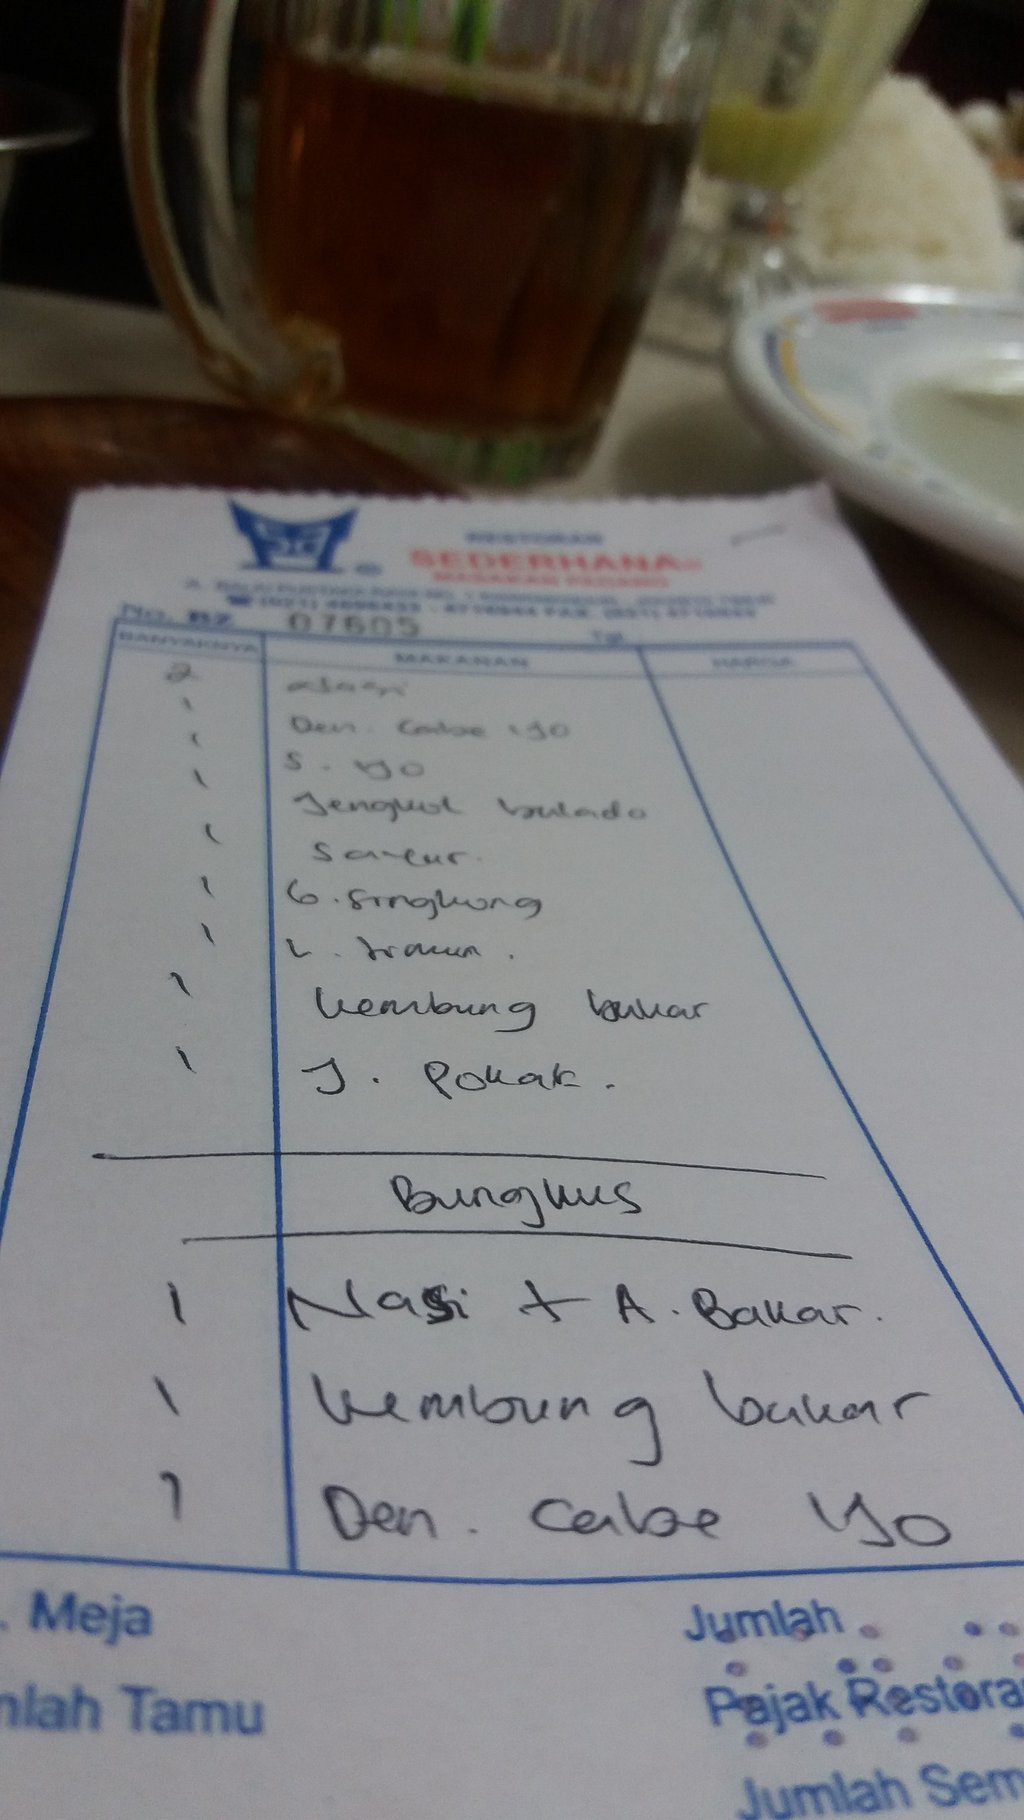 RESTORAN
SEDERHANA
MASAKAN PADANG
No. BZ 07605
BANYAKNYA MAKANAN HARGA
2 Nasi
1 Den. Cabe ijo
1 S. ijo
1 Jengkol balado
1 Sayur.
1 G. Singkong
1
1 Kembung bakar
1 J. Pokat.
Bungkus
1 Nasi + A. Bakar.
1 Kembung bakar
1 Den. Cabe ijo
. Meja Jumlah
mlah Tamu Pajak Restora
Jumlah Sem